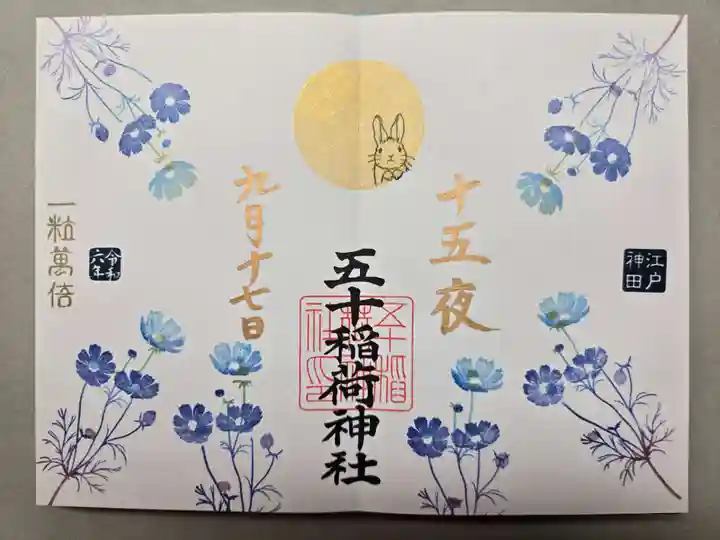 江戸
神田
十五夜
五十稲荷神社
九月十七日
令和
六年
一粒萬倍